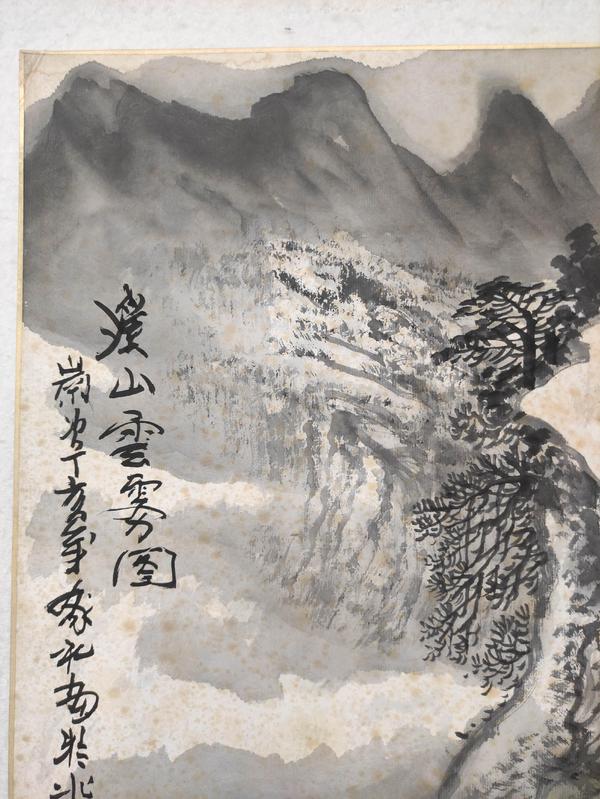 溪山雲霧图
歲次丁亥年家礼画於北